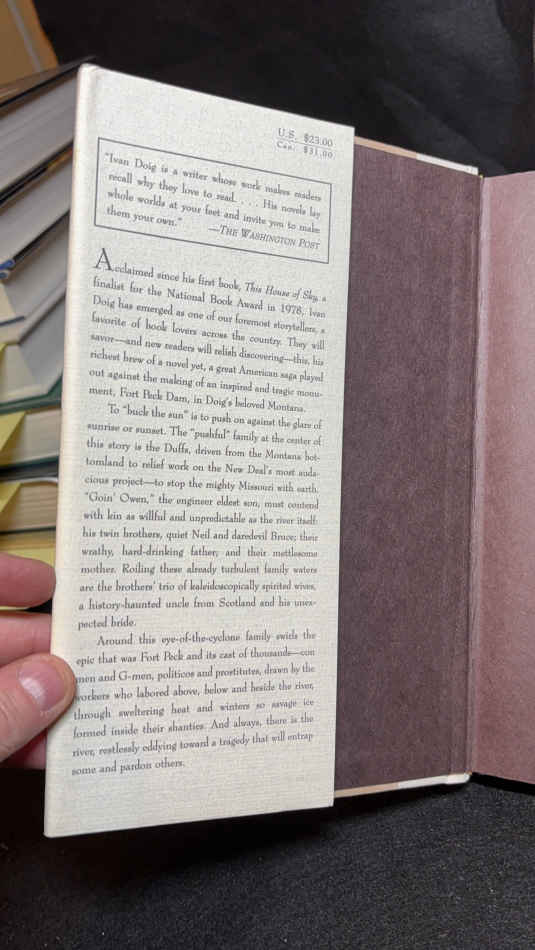 U.S. $23.00
Can. $31.00
"Ivan Doig is a writer whose work makes readers
recall why they love to read. . . . His novels lay
whole worlds at your feet and invite you to make
them your own."
—THE WASHINGTON POST
Acclaimed since his first book, This House of Sky, a
finalist for the National Book Award in 1978, Ivan
Doig has emerged as one of our foremost storytellers, a
favorite of book lovers across the country. They will
savor—and new readers will relish discovering—this, his
richest brew of a novel yet, a great American saga played
out against the making of an inspired and tragic monu-
ment, Fort Peck Dam, in Doig's beloved Montana.
To "buck the sun" is to push on against the glare of
sunrise or sunset. The "pushful" family at the center of
this story is the Duffs, driven from the Montana bot-
tomland to relief work on the New Deal's most auda-
cious project—to stop the mighty Missouri with earth.
"Goin' Owen," the engineer eldest son, must contend
with kin as willful and unpredictable as the river itself:
his twin brothers, quiet Neil and daredevil Bruce; their
wrathy, hard-drinking father; and their mettlesome
mother. Roiling these already turbulent family waters
are the brothers' trio of kaleidoscopically spirited wives,
a history-haunted uncle from Scotland and his unex-
pected bride.
Around this eye-of-the-cyclone family swirls the
epic that was Fort Peck and its cast of thousands—con
men and G-men, politicos and prostitutes, drawn by the
workers who labored above, below and beside the river,
through sweltering heat and winters so savage ice
formed inside their shanties. And always, there is the
river, restlessly eddying toward a tragedy that will entrap
some and pardon others.